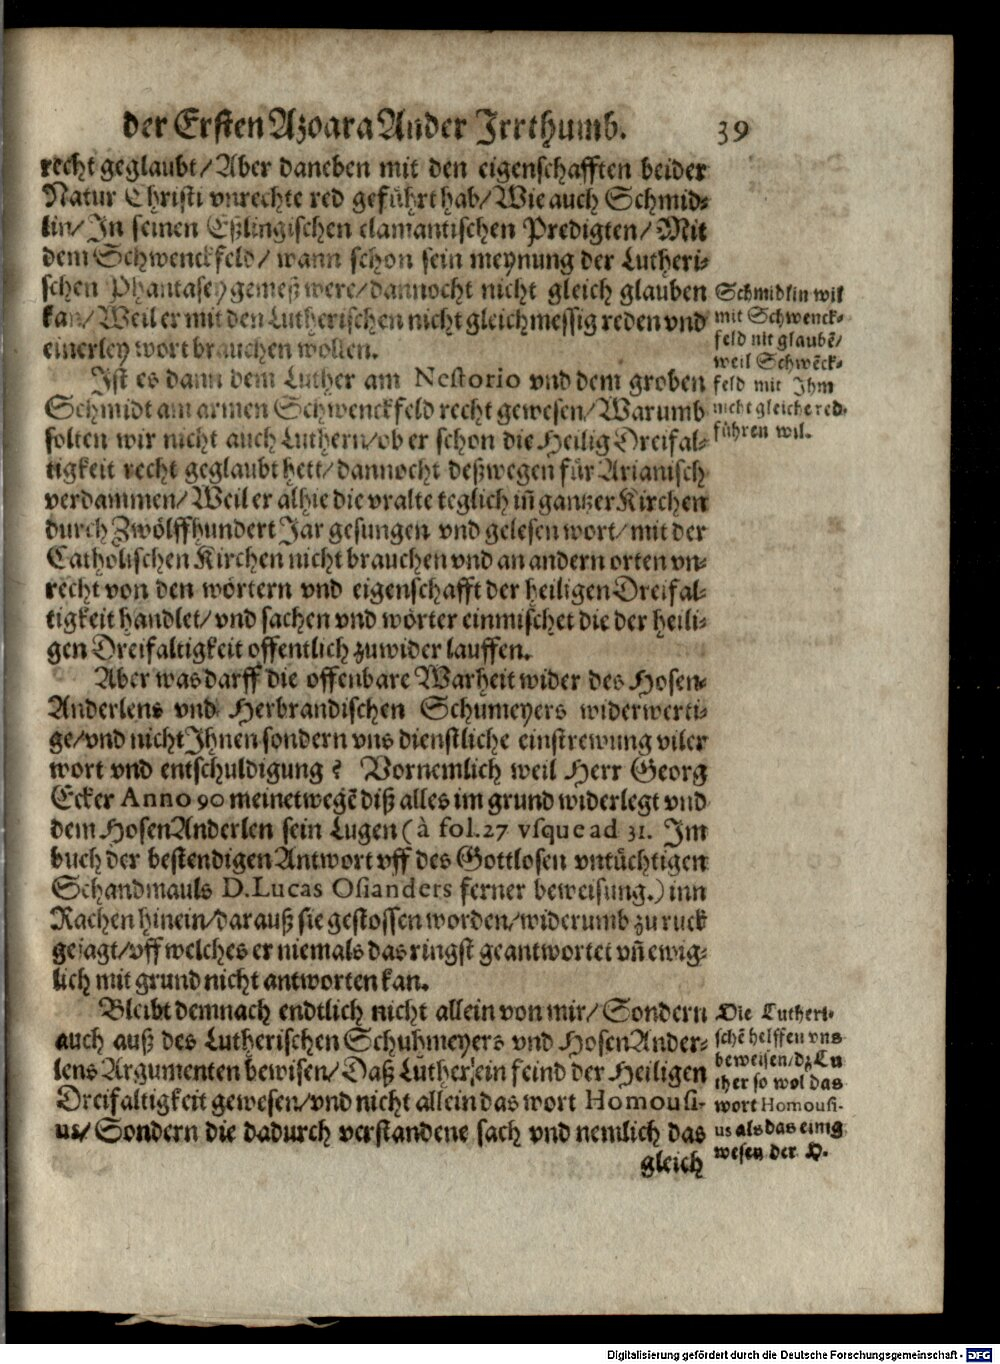 der Ersten Azoara Ander Irrthumb. 39
recht geglaubt/ Aber daneben mit den eigenschafften beider
Natur Christi vnrechte red geführt hab/ Wie auch Schmid-
lin/ In seinen Eßlingischen clamantischen Predigten/ Mit
dem Schwenckfeld/ wann schon sein meynung der Lutheri-
schen Phantasey gemeß were/ dannocht nicht gleich glauben
kan/ Weil er mit den Lutherischen nicht gleichmessig reden vnd
einerley wort brauchen wollen.
Schmidlin wil
mit Schwenck-
feld nit glaubē/
weil Schwēck-
feld mit Ihm
nicht gleiche red
führen wil.
Ist es dann dem Luther am Nestorio vnd dem groben
Schmidt am armen Schwenckfeld recht gewesen/ Warumb
solten wir nicht auch Luthern/ ob er schon die Heilig Dreifal-
tigkeit recht geglaubt hett/ dannocht deßwegen für Arianisch
verdammen/ Weil er alhie die vralte teglich iñ gantzer Kirchen
durch Zwölffhundert Jar gesungen vnd gelesen wort/ mit der
Catholischen Kirchen nicht brauchen vnd an andern orten vn-
recht von den wörtern vnd eigenschafft der heiligen Dreifal-
tigkeit handlet/ vnd sachen vnd wörter einmischet die der heili-
gen Dreifaltigkeit offentlich zuwider lauffen.
Aber was darff die offenbare Warheit wider des Hosen-
Anderlens vnd Herbrandischen Schumeyers widerwerti-
ge/ vnd nicht Ihnen sondern vns dienstliche einstrewung viler
wort vnd entschuldigung? Vornemlich weil Herr Georg
Ecker Anno 90 meinetwegē diß alles im grund widerlegt vnd
dem HosenAnderlen sein Lugen (à fol. 27 vsque ad 31. Im
buch der bestendigen Antwort vff des Gottlosen vntüchtigen
Schandmauls D. Lucas Osianders ferner beweisung.) inn
Rachen hinein/ darauß sie gestossen worden/ widerumb zu ruck
gejagt/ vff welches er niemals das ringst geantwortet vñ ewig-
lich mit grund nicht antworten kan.
Bleibt demnach endtlich nicht allein von mir/ Sondern
auch auß des Lutherischen Schuhmeyers vnd HosenAnder-
lens Argumenten bewisen/ Daß Luther ein feind der Heiligen
Dreifaltigkeit gewesen/ vnd nicht allein das wort Homousi-
us/ Sondern die dadurch verstandene sach vnd nemlich das
gleich
Die Lutheri-
schē helffen vns
beweisen/ dz Lu
ther so wol das
wort Homousi-
us als das einig
wesen der H.
Digitalisierung gefördert durch die Deutsche Forschungsgemeinschaft - DFG